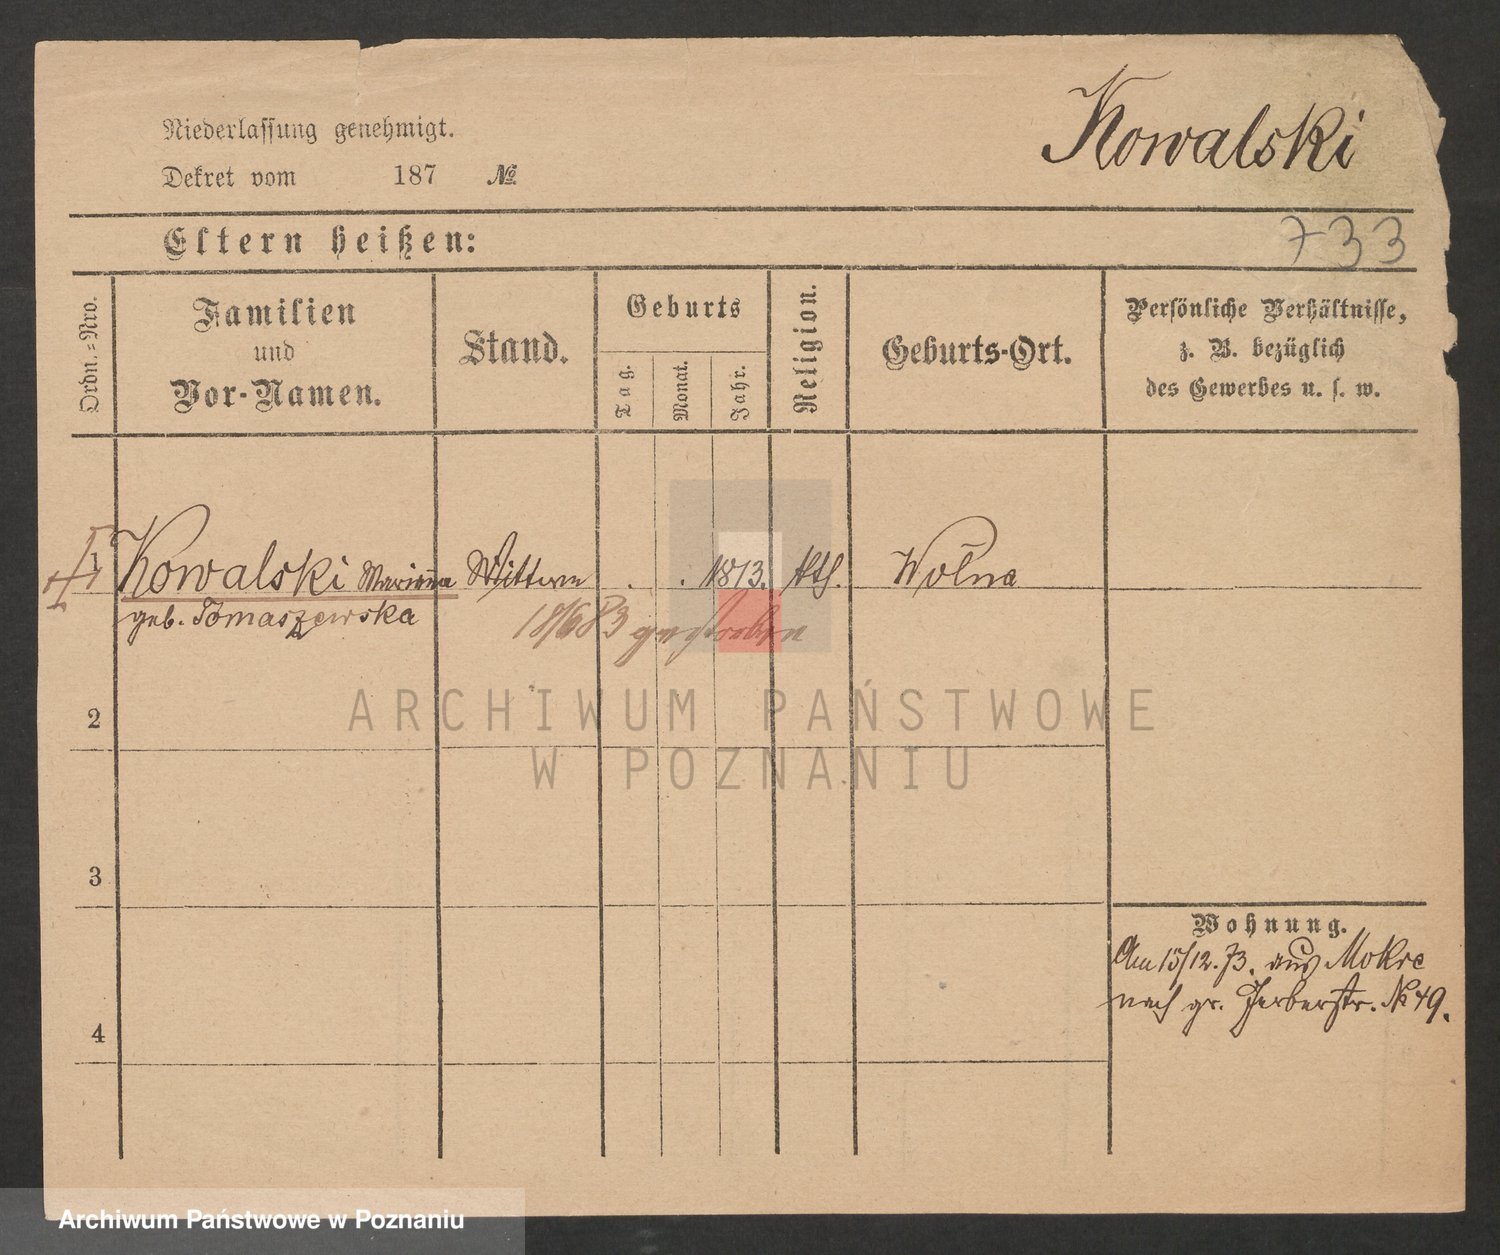 Kowalski
Niederlassung genehmigt.
Dekret vom 187 No
Eltern heißen:
733
Ordn.-Nro.
Familien
und
Vor-Namen.
Stand.
Geburts
Tag.
Monat.
Jahr.
Religion.
Geburts-Ort.
Persönliche Verhältnisse,
z. B. bezüglich
des Gewerbes u. s. w.
1 Kowalski Marianna Wittwe . . 1813. kth. Wolna
geb. Tomaszewska
18/6 83 gestorben
ARCHIWUM PAŃSTWOWE
W POZNANIU
2
3
4
Wohnung.
Am 15/12.73. aus Mokre
nach gr. Gerberstr. No 49.
Archiwum Państwowe w Poznaniu